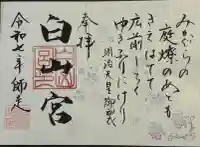 みかぐらの
庭燎のかげも
きえはてて
広前しろく
ゆきふりにけり
明治天皇御製
奉拝
白山宮
令和七年師走